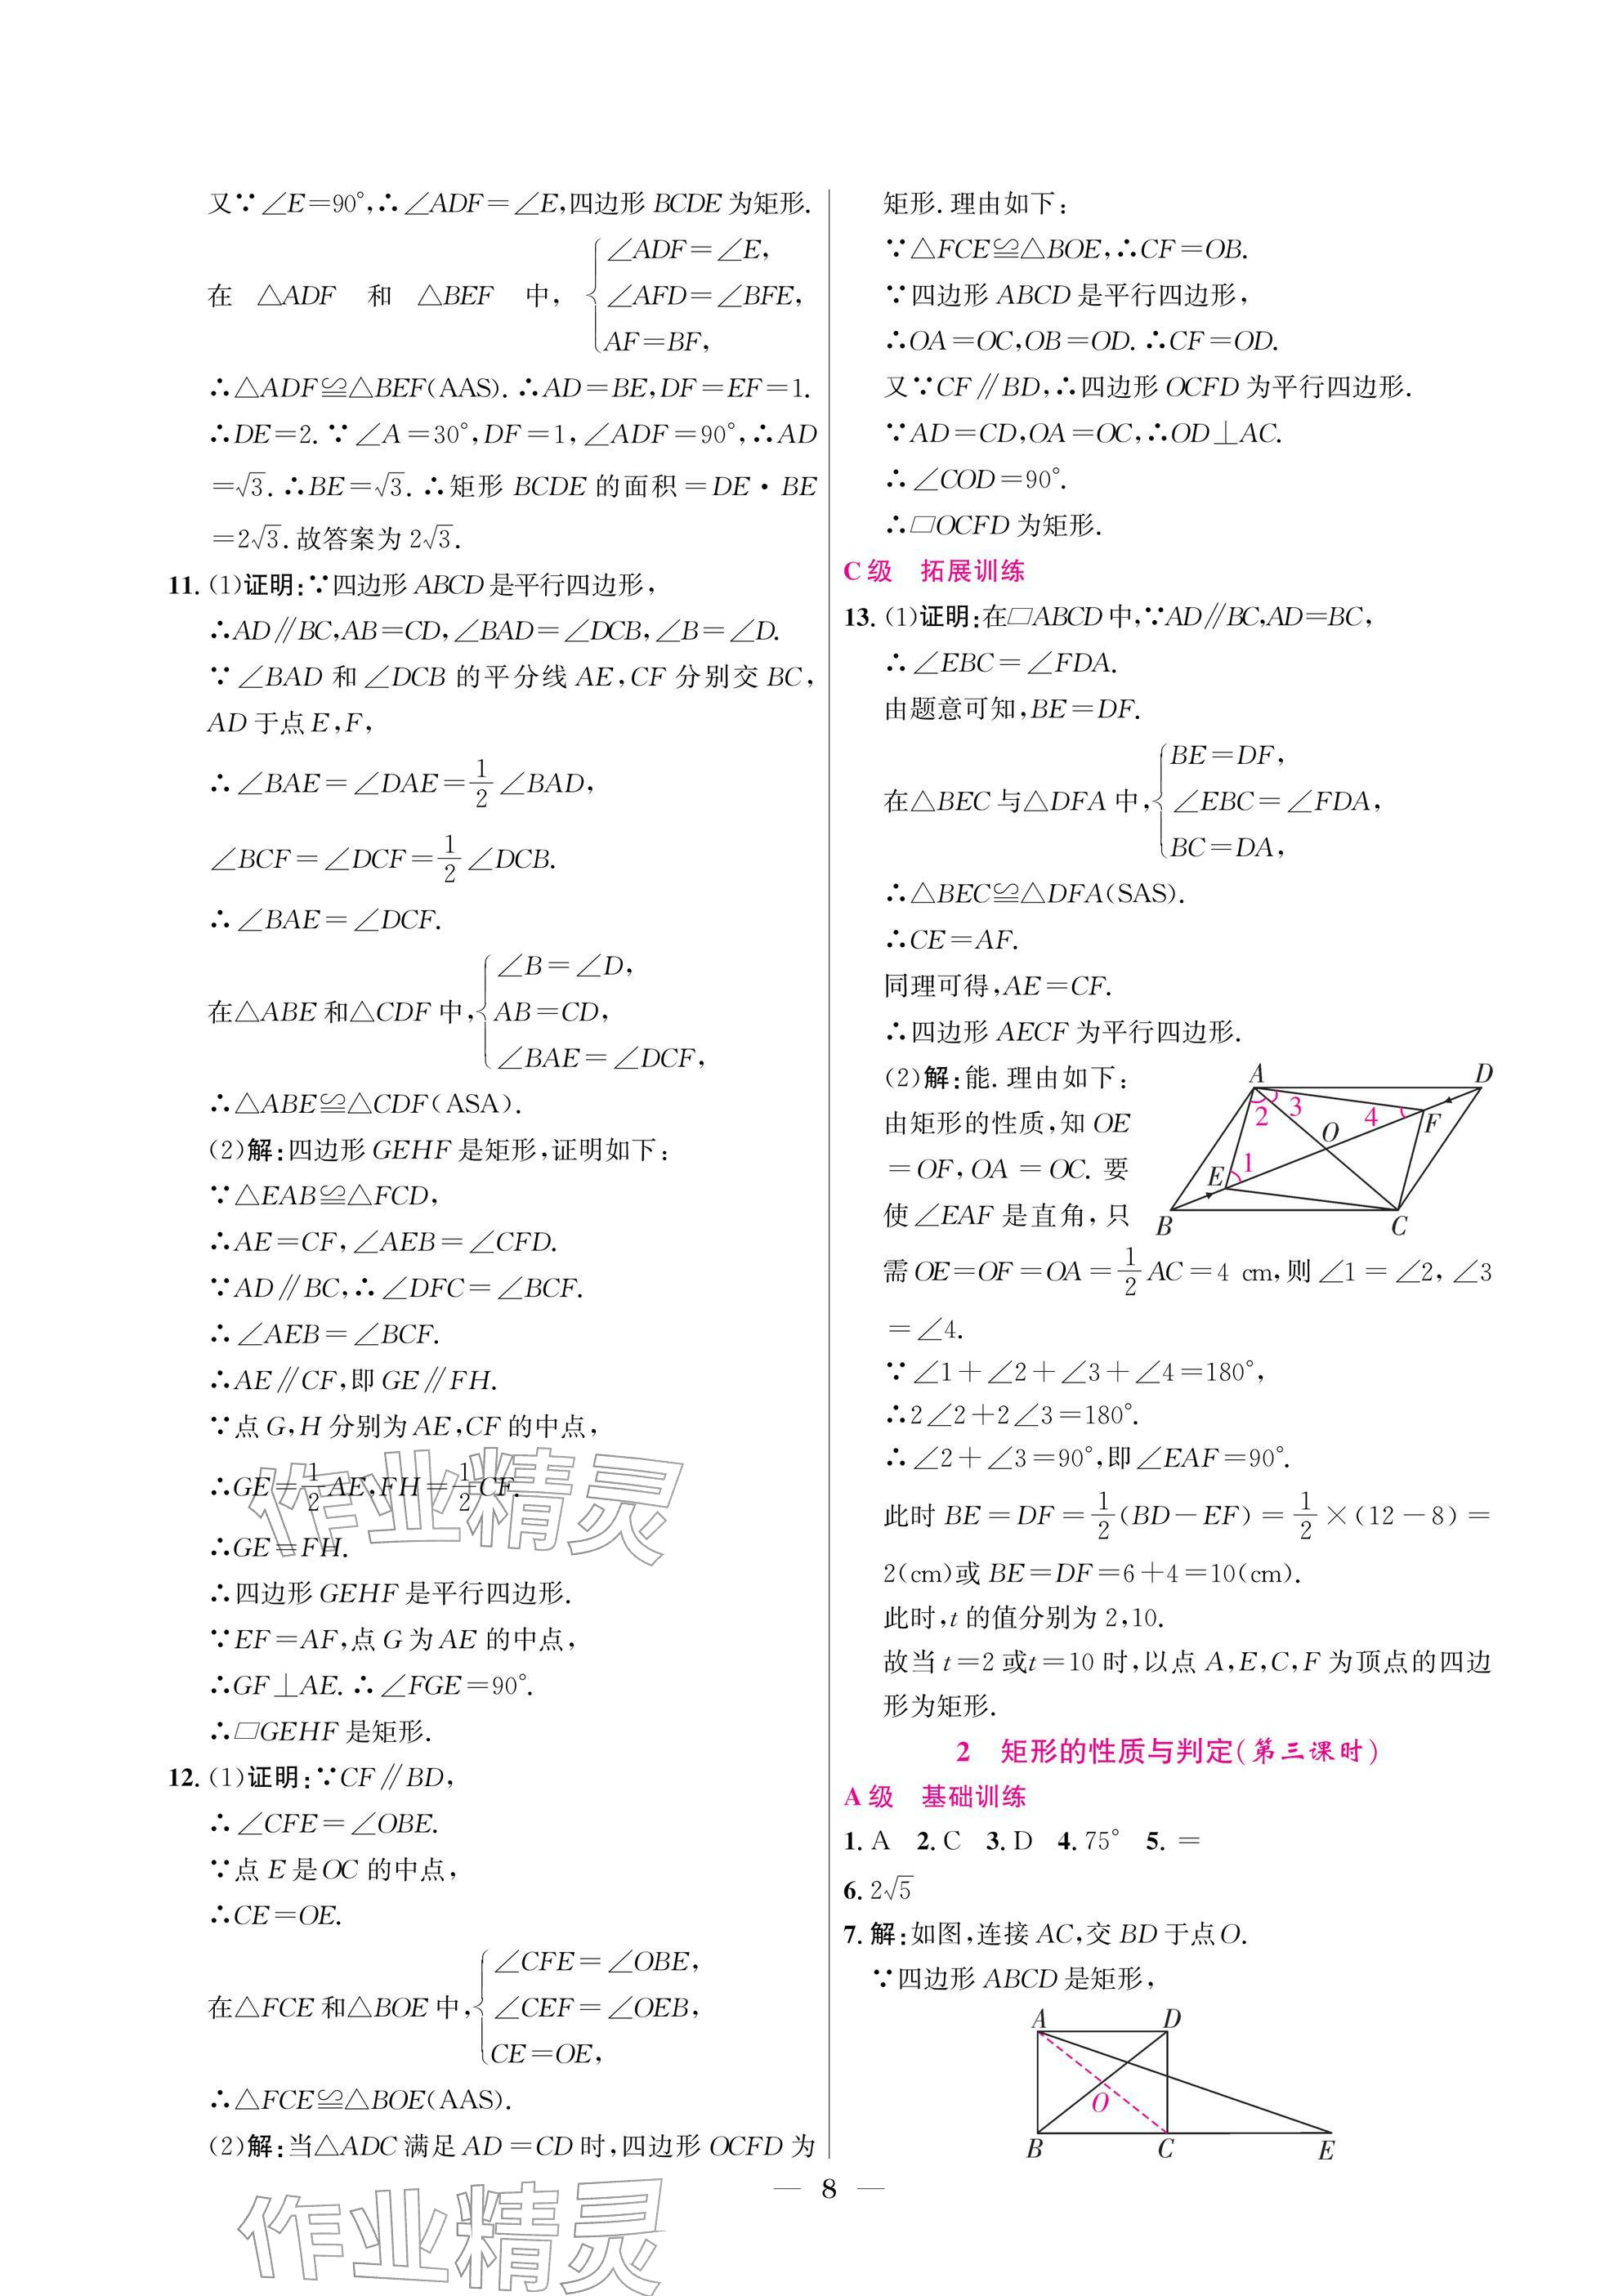 又∵∠E=90°,∴∠ADF=∠E,四边形 BCDE 为矩形.
在 △ADF 和 △BEF 中, {∠ADF=∠E,
∠AFD=∠BFE,
AF=BF,
∴△ADF≌△BEF(AAS).∴AD=BE,DF=EF=1.
∴DE=2.∵∠A=30°,DF=1,∠ADF=90°,∴AD
=√3.∴BE=√3.∴矩形 BCDE 的面积=DE·BE
=2√3.故答案为 2√3.
11. (1)证明:∵四边形 ABCD 是平行四边形,
∴AD∥BC,AB=CD,∠BAD=∠DCB,∠B=∠D.
∵∠BAD 和∠DCB 的平分线 AE,CF 分别交 BC,
AD 于点 E,F,
∴∠BAE=∠DAE=1/2∠BAD,
∠BCF=∠DCF=1/2∠DCB.
∴∠BAE=∠DCF.
在△ABE 和△CDF 中,{∠B=∠D,
AB=CD,
∠BAE=∠DCF,
∴△ABE≌△CDF(ASA).
(2)解:四边形 GEHF 是矩形,证明如下:
∵△EAB≌△FCD,
∴AE=CF,∠AEB=∠CFD.
∵AD∥BC,∴∠DFC=∠BCF.
∴∠AEB=∠BCF.
∴AE∥CF,即 GE∥FH.
∵点 G,H 分别为 AE,CF 的中点,
∴GE=1/2AE,FH=1/2CF.
∴GE=FH.
∴四边形 GEHF 是平行四边形.
∵EF=AF,点 G 为 AE 的中点,
∴GF⊥AE.∴∠FGE=90°.
∴□GEHF 是矩形.
12. (1)证明:∵CF∥BD,
∴∠CFE=∠OBE.
∵点 E 是 OC 的中点,
∴CE=OE.
在△FCE 和△BOE 中,{∠CFE=∠OBE,
∠CEF=∠OEB,
CE=OE,
∴△FCE≌△BOE(AAS).
(2)解:当△ADC 满足 AD=CD 时,四边形 OCFD 为
矩形.理由如下:
∵△FCE≌△BOE,∴CF=OB.
∵四边形 ABCD 是平行四边形,
∴OA=OC,OB=OD.∴CF=OD.
又∵CF∥BD,∴四边形 OCFD 为平行四边形.
∵AD=CD,OA=OC,∴OD⊥AC.
∴∠COD=90°.
∴□OCFD 为矩形.
C级 拓展训练
13. (1)证明:在□ABCD 中,∵AD∥BC,AD=BC,
∴∠EBC=∠FDA.
由题意可知,BE=DF.
在△BEC 与△DFA 中,{BE=DF,
∠EBC=∠FDA,
BC=DA,
∴△BEC≌△DFA(SAS).
∴CE=AF.
同理可得,AE=CF.
∴四边形 AECF 为平行四边形.
(2)解:能.理由如下:
由矩形的性质,知 OE
=OF,OA=OC.要
使∠EAF 是直角,只
A D
2 3 4 F
O
E 1
B C
需 OE=OF=OA=1/2AC=4 cm,则∠1=∠2,∠3
=∠4.
∵∠1+∠2+∠3+∠4=180°,
∴2∠2+2∠3=180°.
∴∠2+∠3=90°,即∠EAF=90°.
此时 BE=DF=1/2(BD-EF)=1/2×(12-8)=
2(cm)或 BE=DF=6+4=10(cm).
此时,t 的值分别为 2,10.
故当 t=2 或t=10 时,以点 A,E,C,F 为顶点的四边
形为矩形.
2 矩形的性质与判定(第三课时)
A级 基础训练
1. A 2. C 3. D 4. 75° 5. =
6. 2√5
7. 解:如图,连接 AC,交 BD 于点 O.
∵四边形 ABCD 是矩形,
A D
O
B C E
— 8 —
作业精灵
作业精灵